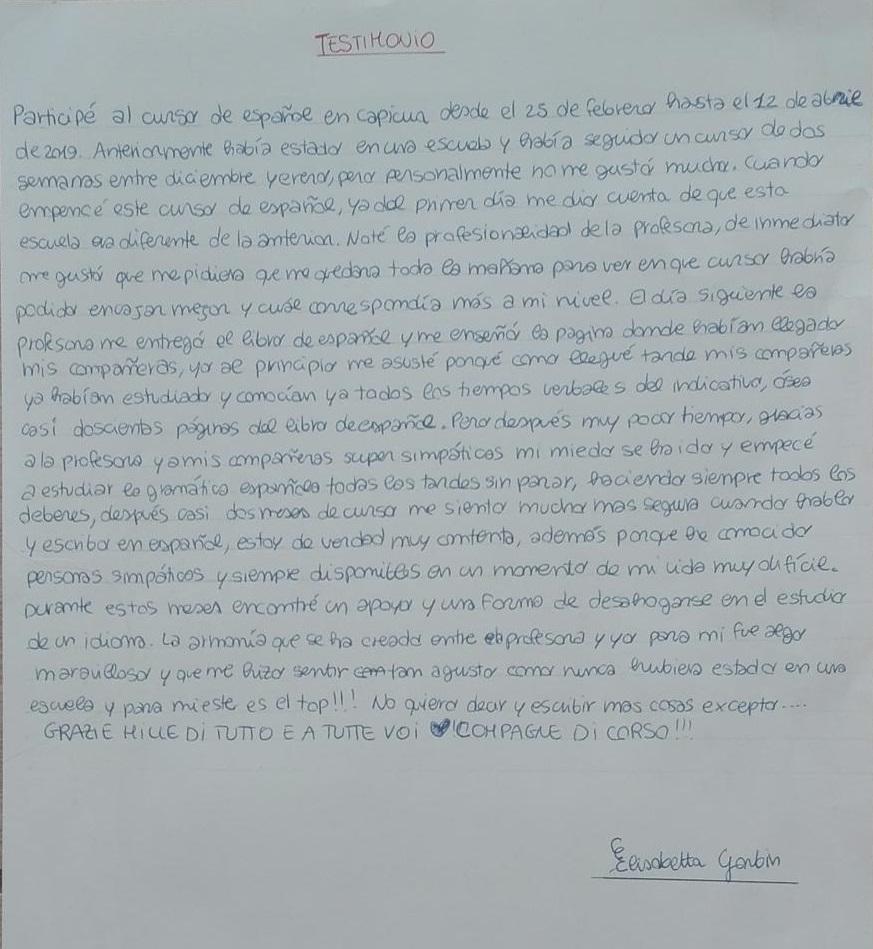 TESTIMONIO
Participé al curso de español en capicua desde el 25 de febrero hasta el 12 de abril
de 2019. Anteriormente había estado en una escuela y había seguido un curso de dos
semanas entre diciembre y enero, pero personalmente no me gustó mucho. Cuando
empencé este curso de español, ya del primer día me dio cuenta de que esta
escuela era diferente de la anterior. Noté la profesionalidad de la profesora, de inmediato
me gustó que me pidiera que me quedara toda la mañana para ver en que curso habría
podido encajar mejor y cuál correspondía más a mi nivel. El día siguiente la
profesora me entregó el libro de español y me enseñó la pagina donde habían llegado
mis compañeras, yo al principio me asusté porqué como llegué tarde mis compañeras
ya habían estudiado y conocían ya todos los tiempos verbales del indicativo, ósea
casí doscientas páginas del libro de español. Pero después muy poco tiempo, gracias
a la profesora y a mis compañeras super simpáticas mi miedo se ha ido y empecé
a estudiar la gramática española todas las tardes sin parar, haciendo siempre todos los
deberes, después casi dos meses de curso me siento mucho mas segura cuando hablo
y escribo en español, estoy de verdad muy contenta, además porque he conocido
personas simpáticas y siempre disponibles en un momento de mi vida muy difícil.
Durante estos meses encontré un apoyo y una forma de desahogarse en el estudio
de un idioma. La armonía que se ha creado entre la profesora y yo para mi fue algo
maravilloso y que me hizo sentir tan a gusto como nunca hubiera estado en una
escuela y para mi este es el top!!! No quiero decir y escribir mas cosas excepto....
GRAZIE MILLE DI TUTTO E A TUTTE VOI COMPAGNE DI CORSO!!!
Elisabetta Gorbin